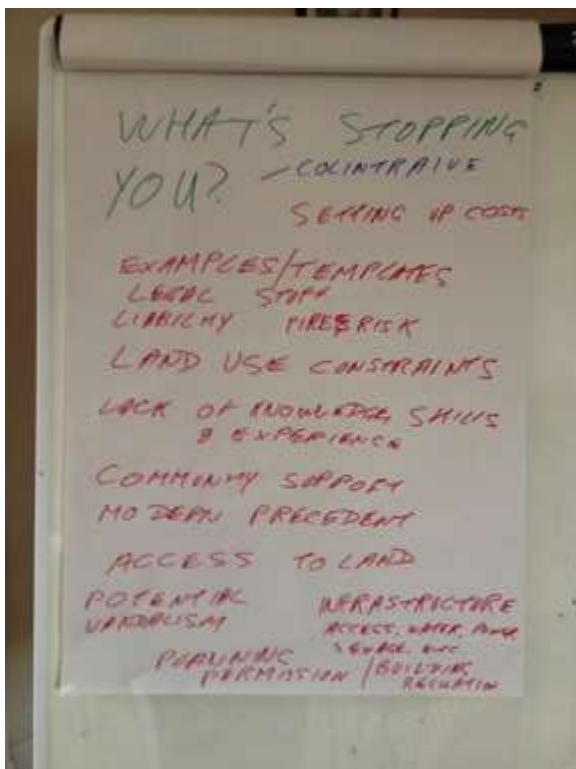 WHAT'S STOPPING
YOU? - COLINTRAIVE
SETTING UP COSTS
EXAMPLES/TEMPLATES
LEGAL STUFF
LIABILITY FIRE RISK
LAND USE CONSTRAINTS
LACK OF KNOWLEDGE, SKILLS
& EXPERIENCE
COMMUNITY SUPPORT
MODERN PRECEDENT
ACCESS TO LAND
POTENTIAL
VANDALISM
INFRASTRUCTURE
ACCESS, WATER, POWER,
SEWAGE, ETC
PLANNING
PERMISSION / BUILDING
REGULATION